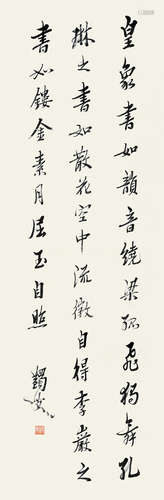 皇象書如韻音繞梁孤飛獨舞孔
琳之書如散花空中流徽自得李巖之
書如鏤金素月屈玉自照
蠲叟